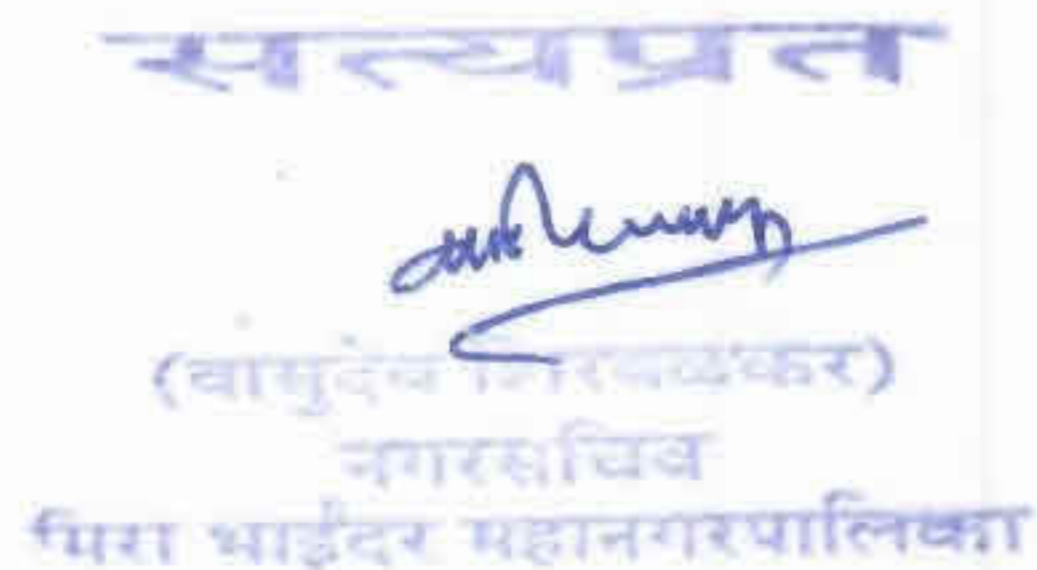 सत्यप्रत
(वासुदेव शिरवळकर)
नगरसचिव
मिरा भाईंदर महानगरपालिका